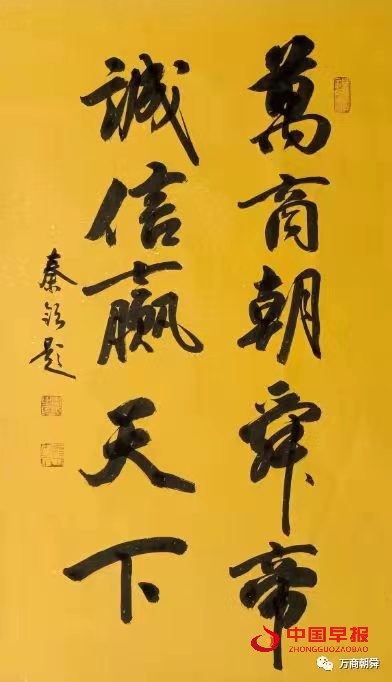 萬商朝舜帝
誠信贏天下
秦钦题
中国早报
ZHONGGUOZAOBAO
万商朝舜